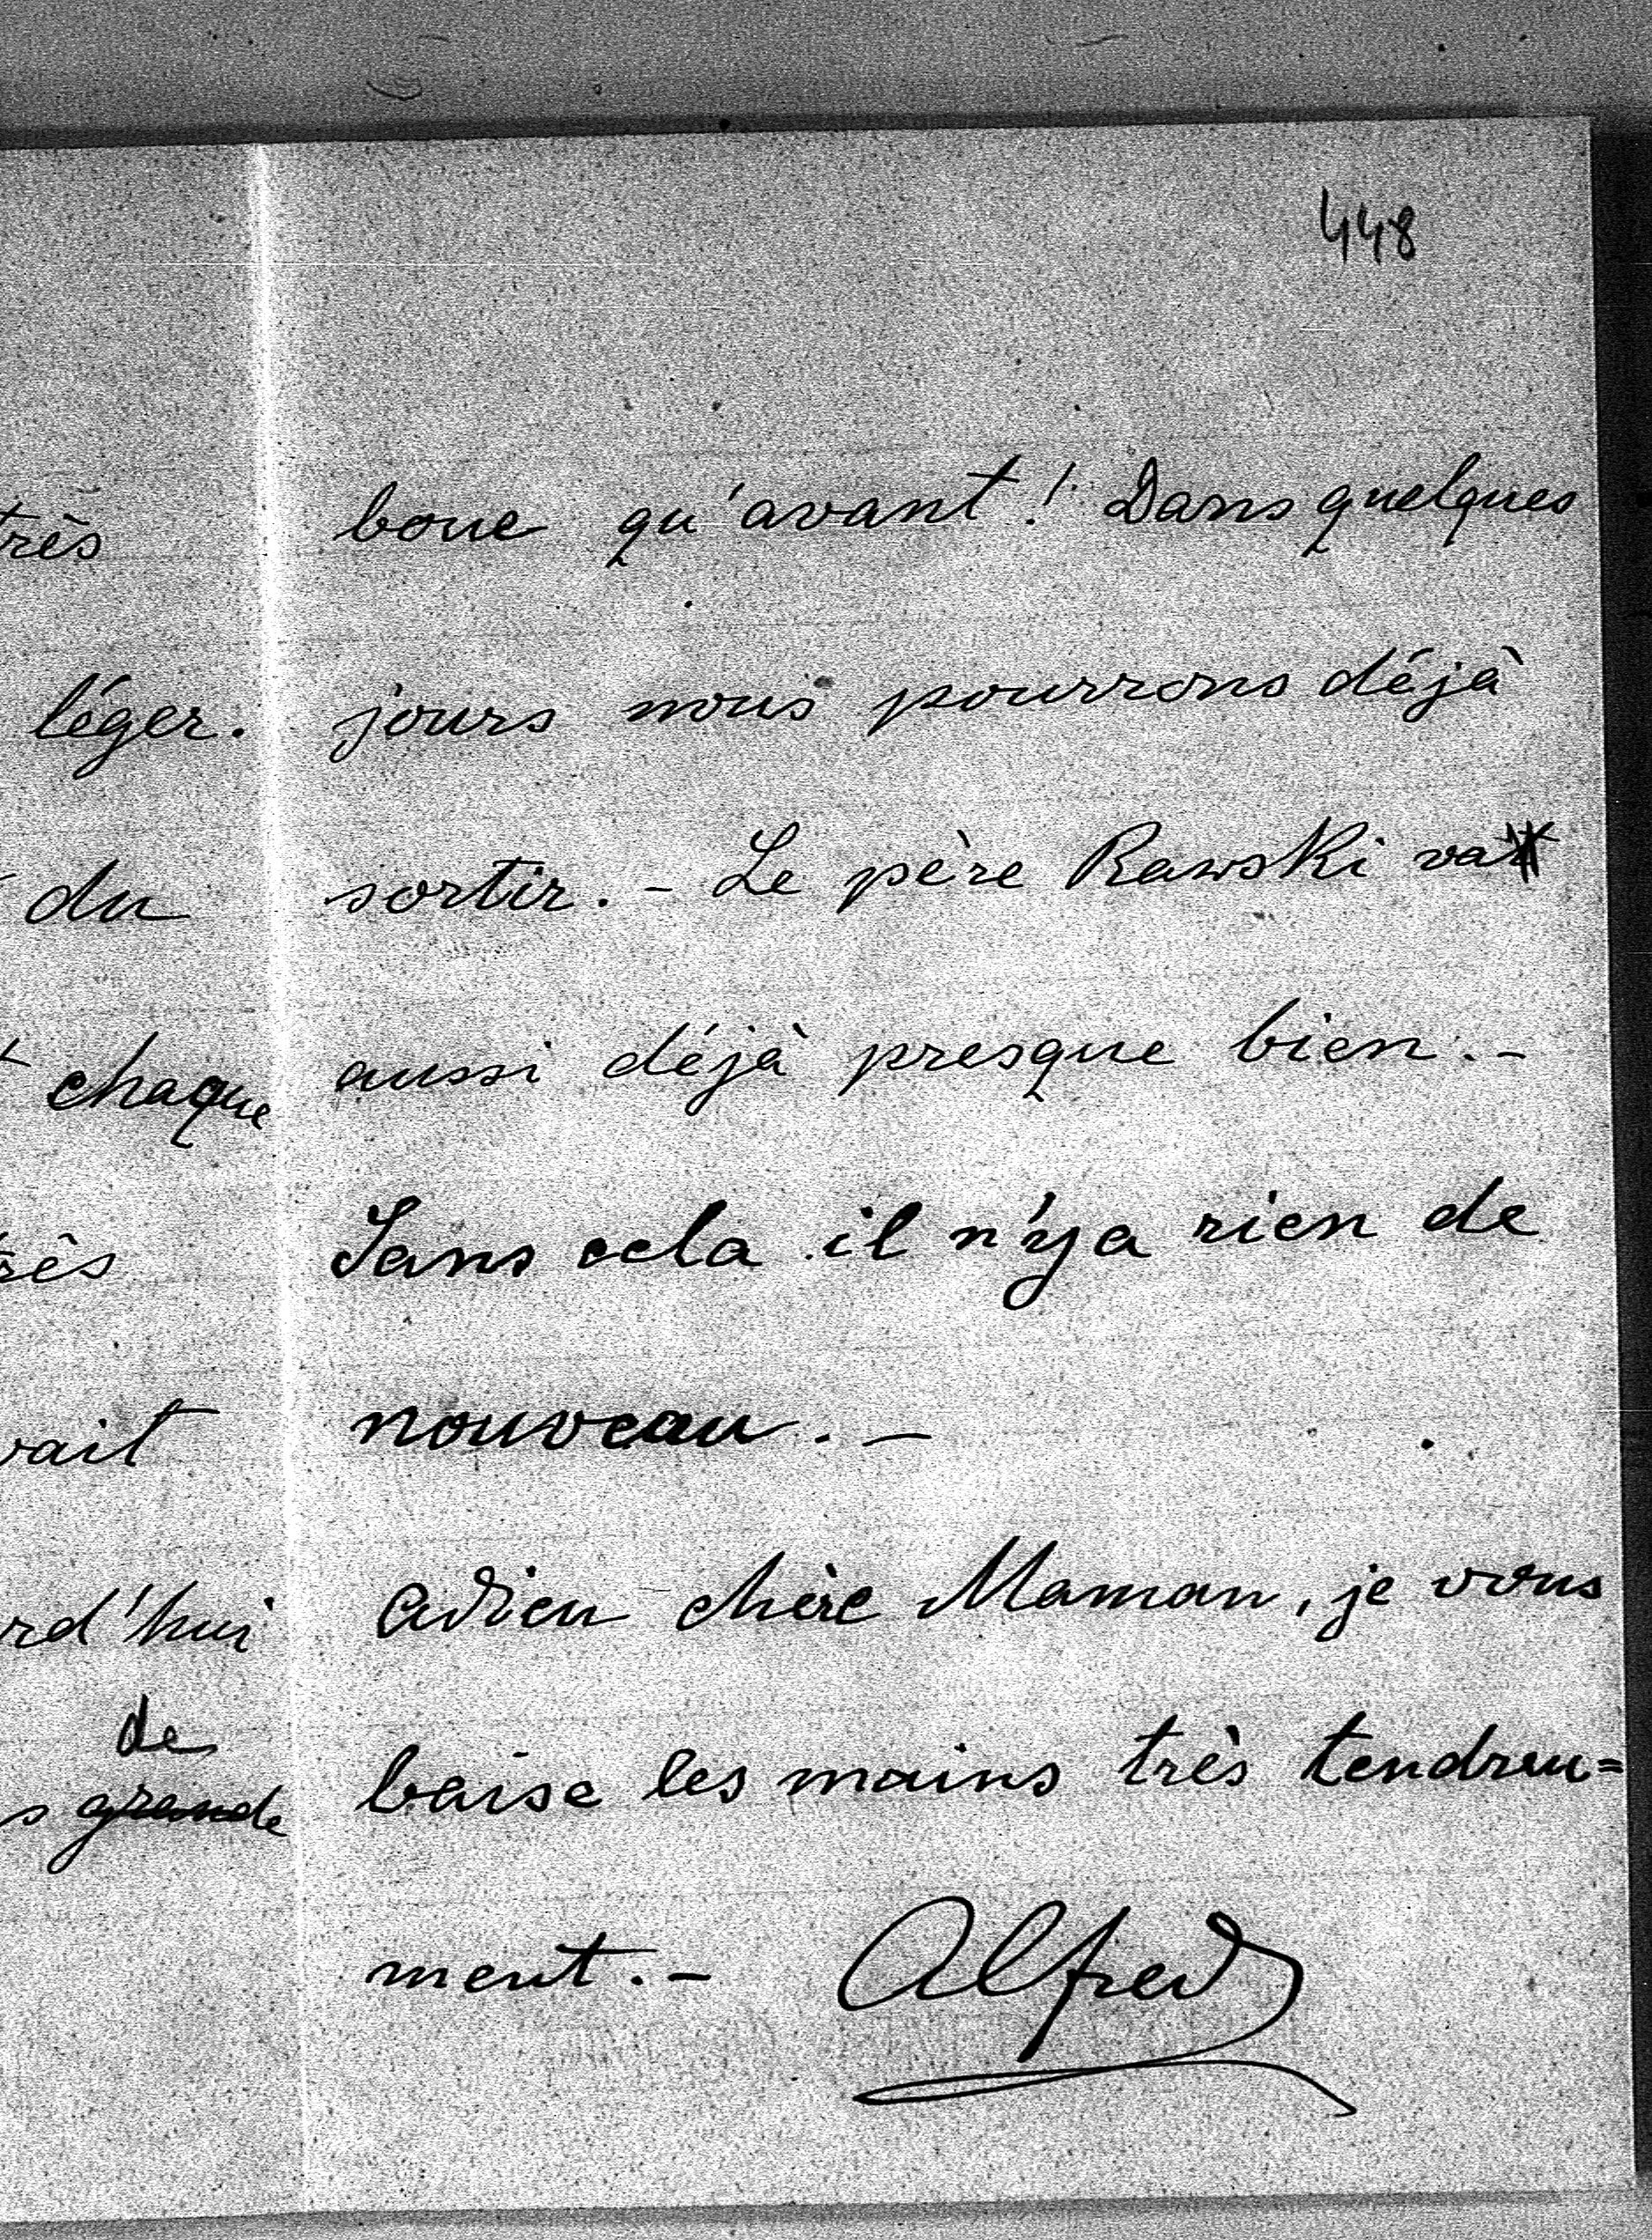 448
très
léger.
du
chaque
vait
rd'hui
de
s grande
boue qu'avant! Dans quelques
jours nous pourrons déjà
sortir. - Le père Rawski va
aussi déjà presque bien. -
Sans cela il n'y a rien de
nouveau. -
Adieu chère Maman, je vous
baise les mains très tendreu=
ment. - Alfred